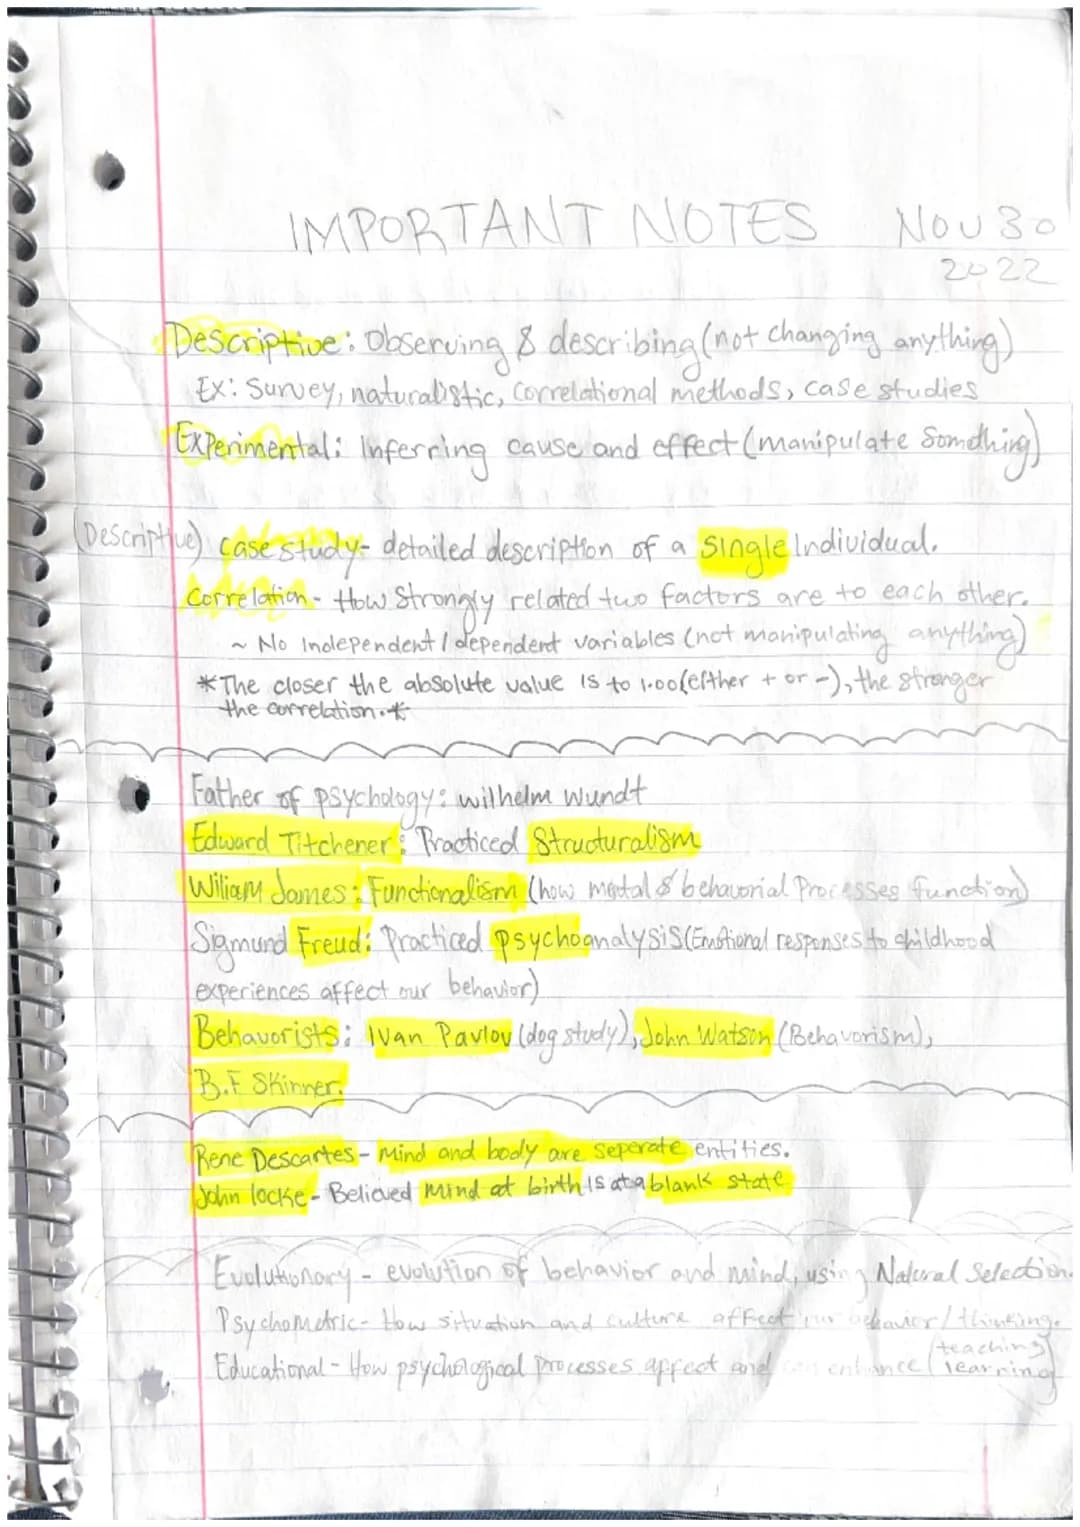 IMPORTANT NOTES Nov 30
2022
Descriptive: Observing & describing (not changing anything)
Ex: Survey, naturalistic, correlational methods, case studies
Experimental: Inferring cause and effect (manipulate something)
(Descriptive) case study- detailed description of a single Individual.
Correlation - How Strongly related two factors are to each other.
~ No Independent / dependent variables (not manipulating anything)
*The closer the absolute value is to 1.00 (either + or -), the stronger
the correlation.*
Father of psychology: wilhelm wundt
Edward Titchener: Practiced Structuralism
Wiliam James: Functionalism (how mental & behavorial Processes function)
Sigmund Freud: Practiced psychoanalysis (Emotional responses to childhood
experiences affect our behavior)
Behavorists: Ivan Pavlov (dog study), John Watson (Behavorism),
B.F Skinner.
Rene Descartes - Mind and body are seperate entities.
John locke - Believed mind at birth is at a blank state
Evolutionary - evolution of behavior and mind, using Natural Selection.
Psychometric - How situation and culture affect our behavior / thinking.
teaching
Educational - How psychological processes affect and can enhance learning